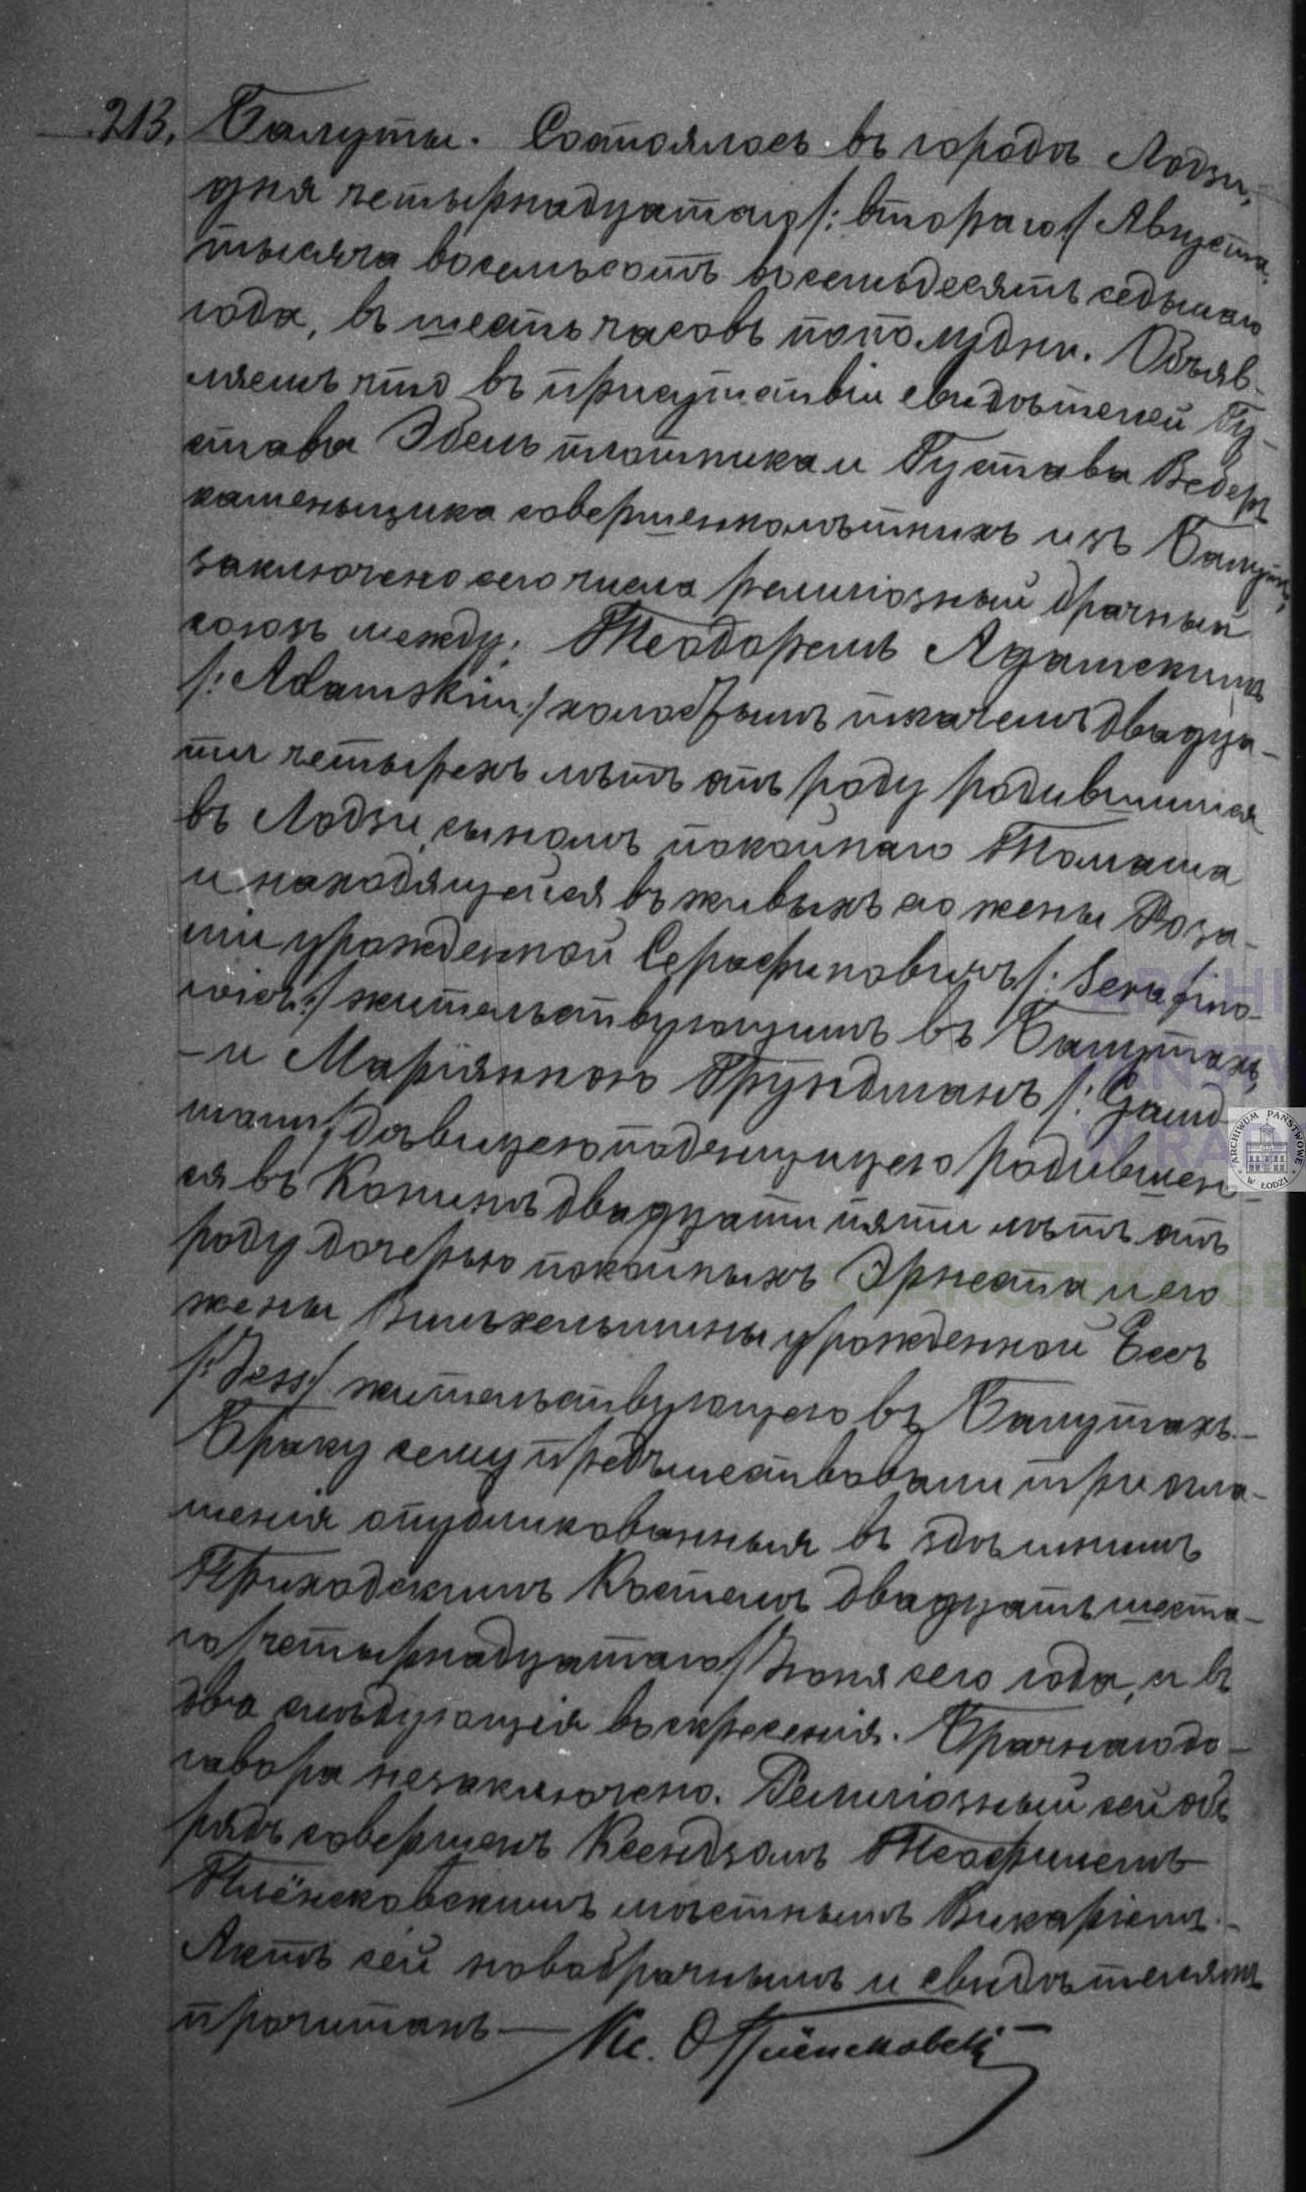 213. Балуты. Состоялось въ городѣ Лодзи,
дня четырнадцатаго /: втораго :/ Августа
тысяча восемьсотъ восемьдесятъ седьмаго
года, въ шесть часовъ пополудни. Объяв-
ляемъ что въ присутствіи свидѣтелей Гу-
става Эбель плотника и Густава Веберъ
каменьщика совершеннолѣтнихъ изъ Балутъ,
заключено сего числа религіозный брачный
союзъ между: Теодоромъ Адамскимъ
/: Adamskim :/ холостымъ ткачемъ двадца-
ти четырехъ лѣтъ отъ роду родившимся
въ Лодзи, сыномъ покойнаго Томаша
и находящейся въ живыхъ его жены Роза-
ліи урожденной Серафиновичъ /: Serafino-
wicz :/ жительствующимъ въ Балутахъ,
– и Маріянною Грундманъ /:
mann :/ дѣвицею поденщицею родившей-
ся въ Конинѣ двадцати пяти лѣтъ отъ
роду дочерью покойныхъ Эрнеста и его
жены Вильхельмины урожденной Ессъ
/: Jess :/ жительствующею въ Балутахъ. –
Браку сему предшествовали три огла-
шенія опубликованныя въ здѣшнимъ
Приходскимъ Костелѣ двадцать шеста-
го /четырнадцатаго/ Іюня сего года, и въ
два слѣдующія воскресенія. Брачнаго до-
говора незаключено. Религіозный сей об-
рядъ совершенъ Ксендзомъ Теофилемъ
Плёнсковскимъ мѣстнымъ Викаріемъ. –
Актъ сей новобрачнымъ и свидѣтелямъ
прочитанъ — Кс. Плёнсковскі
ARCHI
PAŃSTW
W RA
GE
ARCHIWUM PAŃSTWOWE W ŁODZI